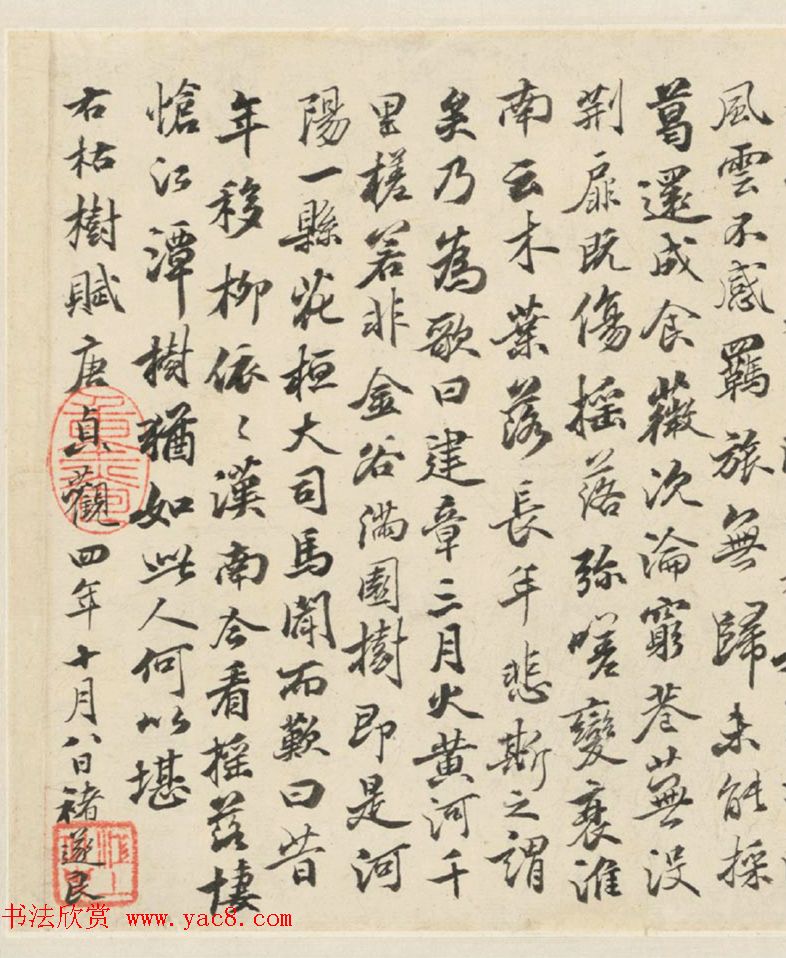 風雲不感羈旅無歸未能採
葛還成食薇沉淪窮巷蕪没
荆扉既傷揺落弥嗟變衰淮
南云木葉落長年悲斯之謂
矣乃為歌曰建章三月火黄河千
里槎若非金谷満園樹即是河
陽一縣花桓大司馬聞而歎曰昔
年移柳依〻漢南今看揺落悽
愴江潭樹猶如此人何以堪
右枯樹賦唐貞觀四年十月八日褚遂良
书法欣赏 www.yac8.com